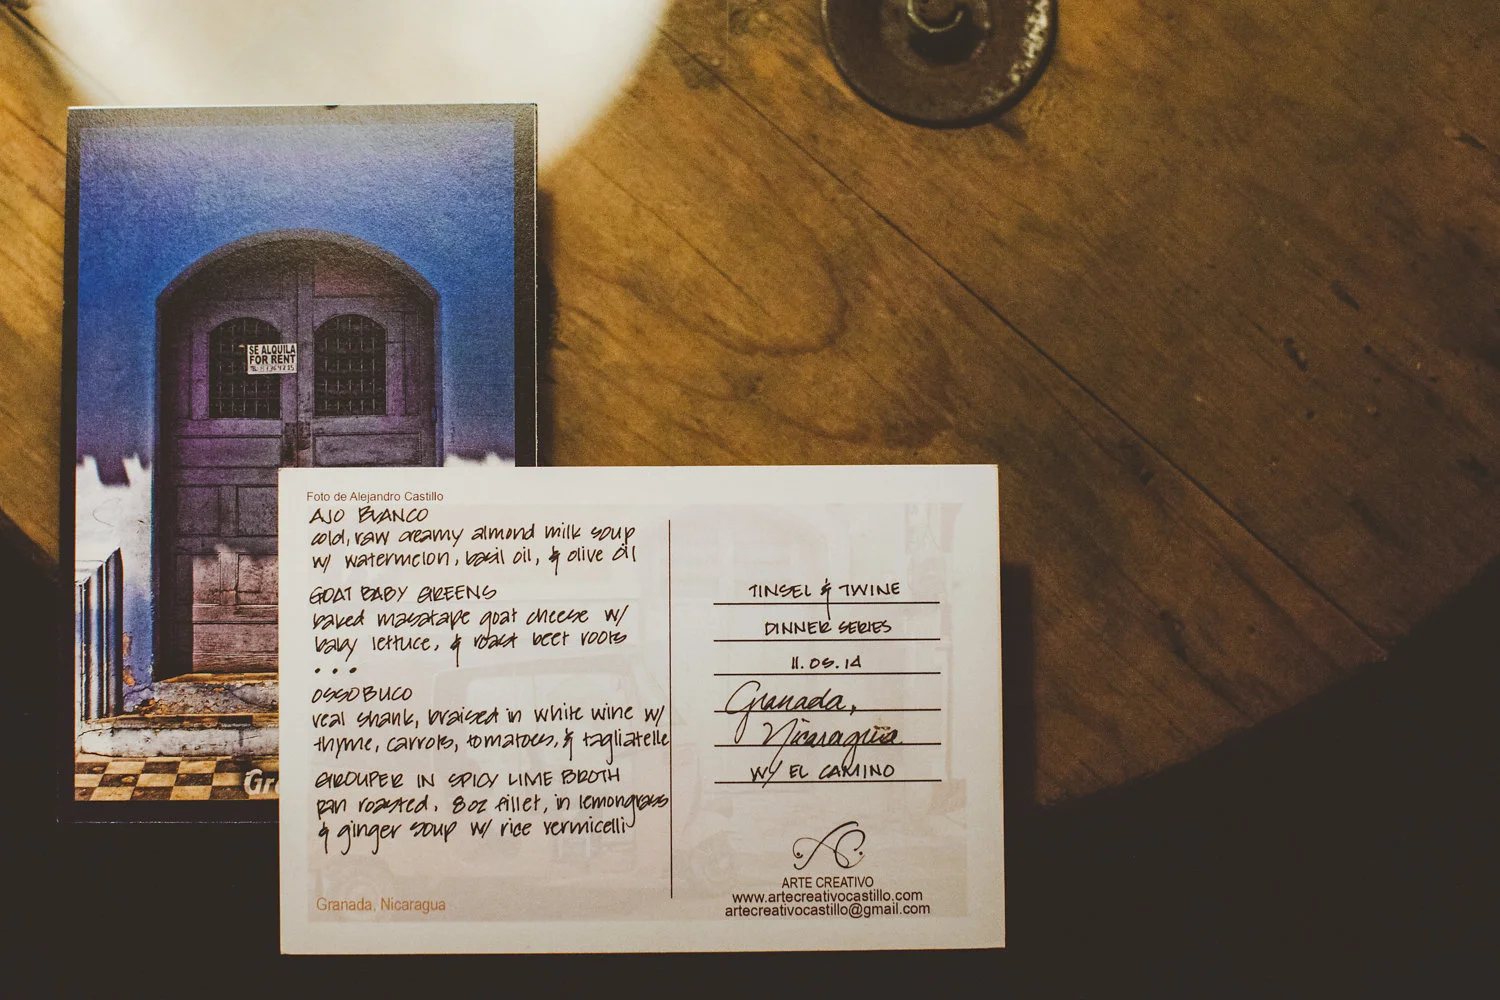 SE ALQUILA
FOR RENT
Gr
Foto de Alejandro Castillo
AJO BLANCO
cold, raw creamy almond milk soup
w/ watermelon, basil oil, & olive oil
GOAT BABY GREENS
baked masatape goat cheese w/
baby lettuce, & roast beet roots
...
OSSOBUCO
veal shank, braised in white wine w/
thyme, carrots, tomatoes, & tagliatelle
GROUPER IN SPICY LIME BROTH
pan roasted, 8oz fillet, in lemongrass
& ginger soup w/ rice vermicelli
Granada, Nicaragua
TINSEL & TWINE
DINNER SERIES
11.05.14
Granada,
Nicaragua
W/ EL CAMINO
AC
ARTE CREATIVO
www.artecreativocastillo.com
artecreativocastillo@gmail.com